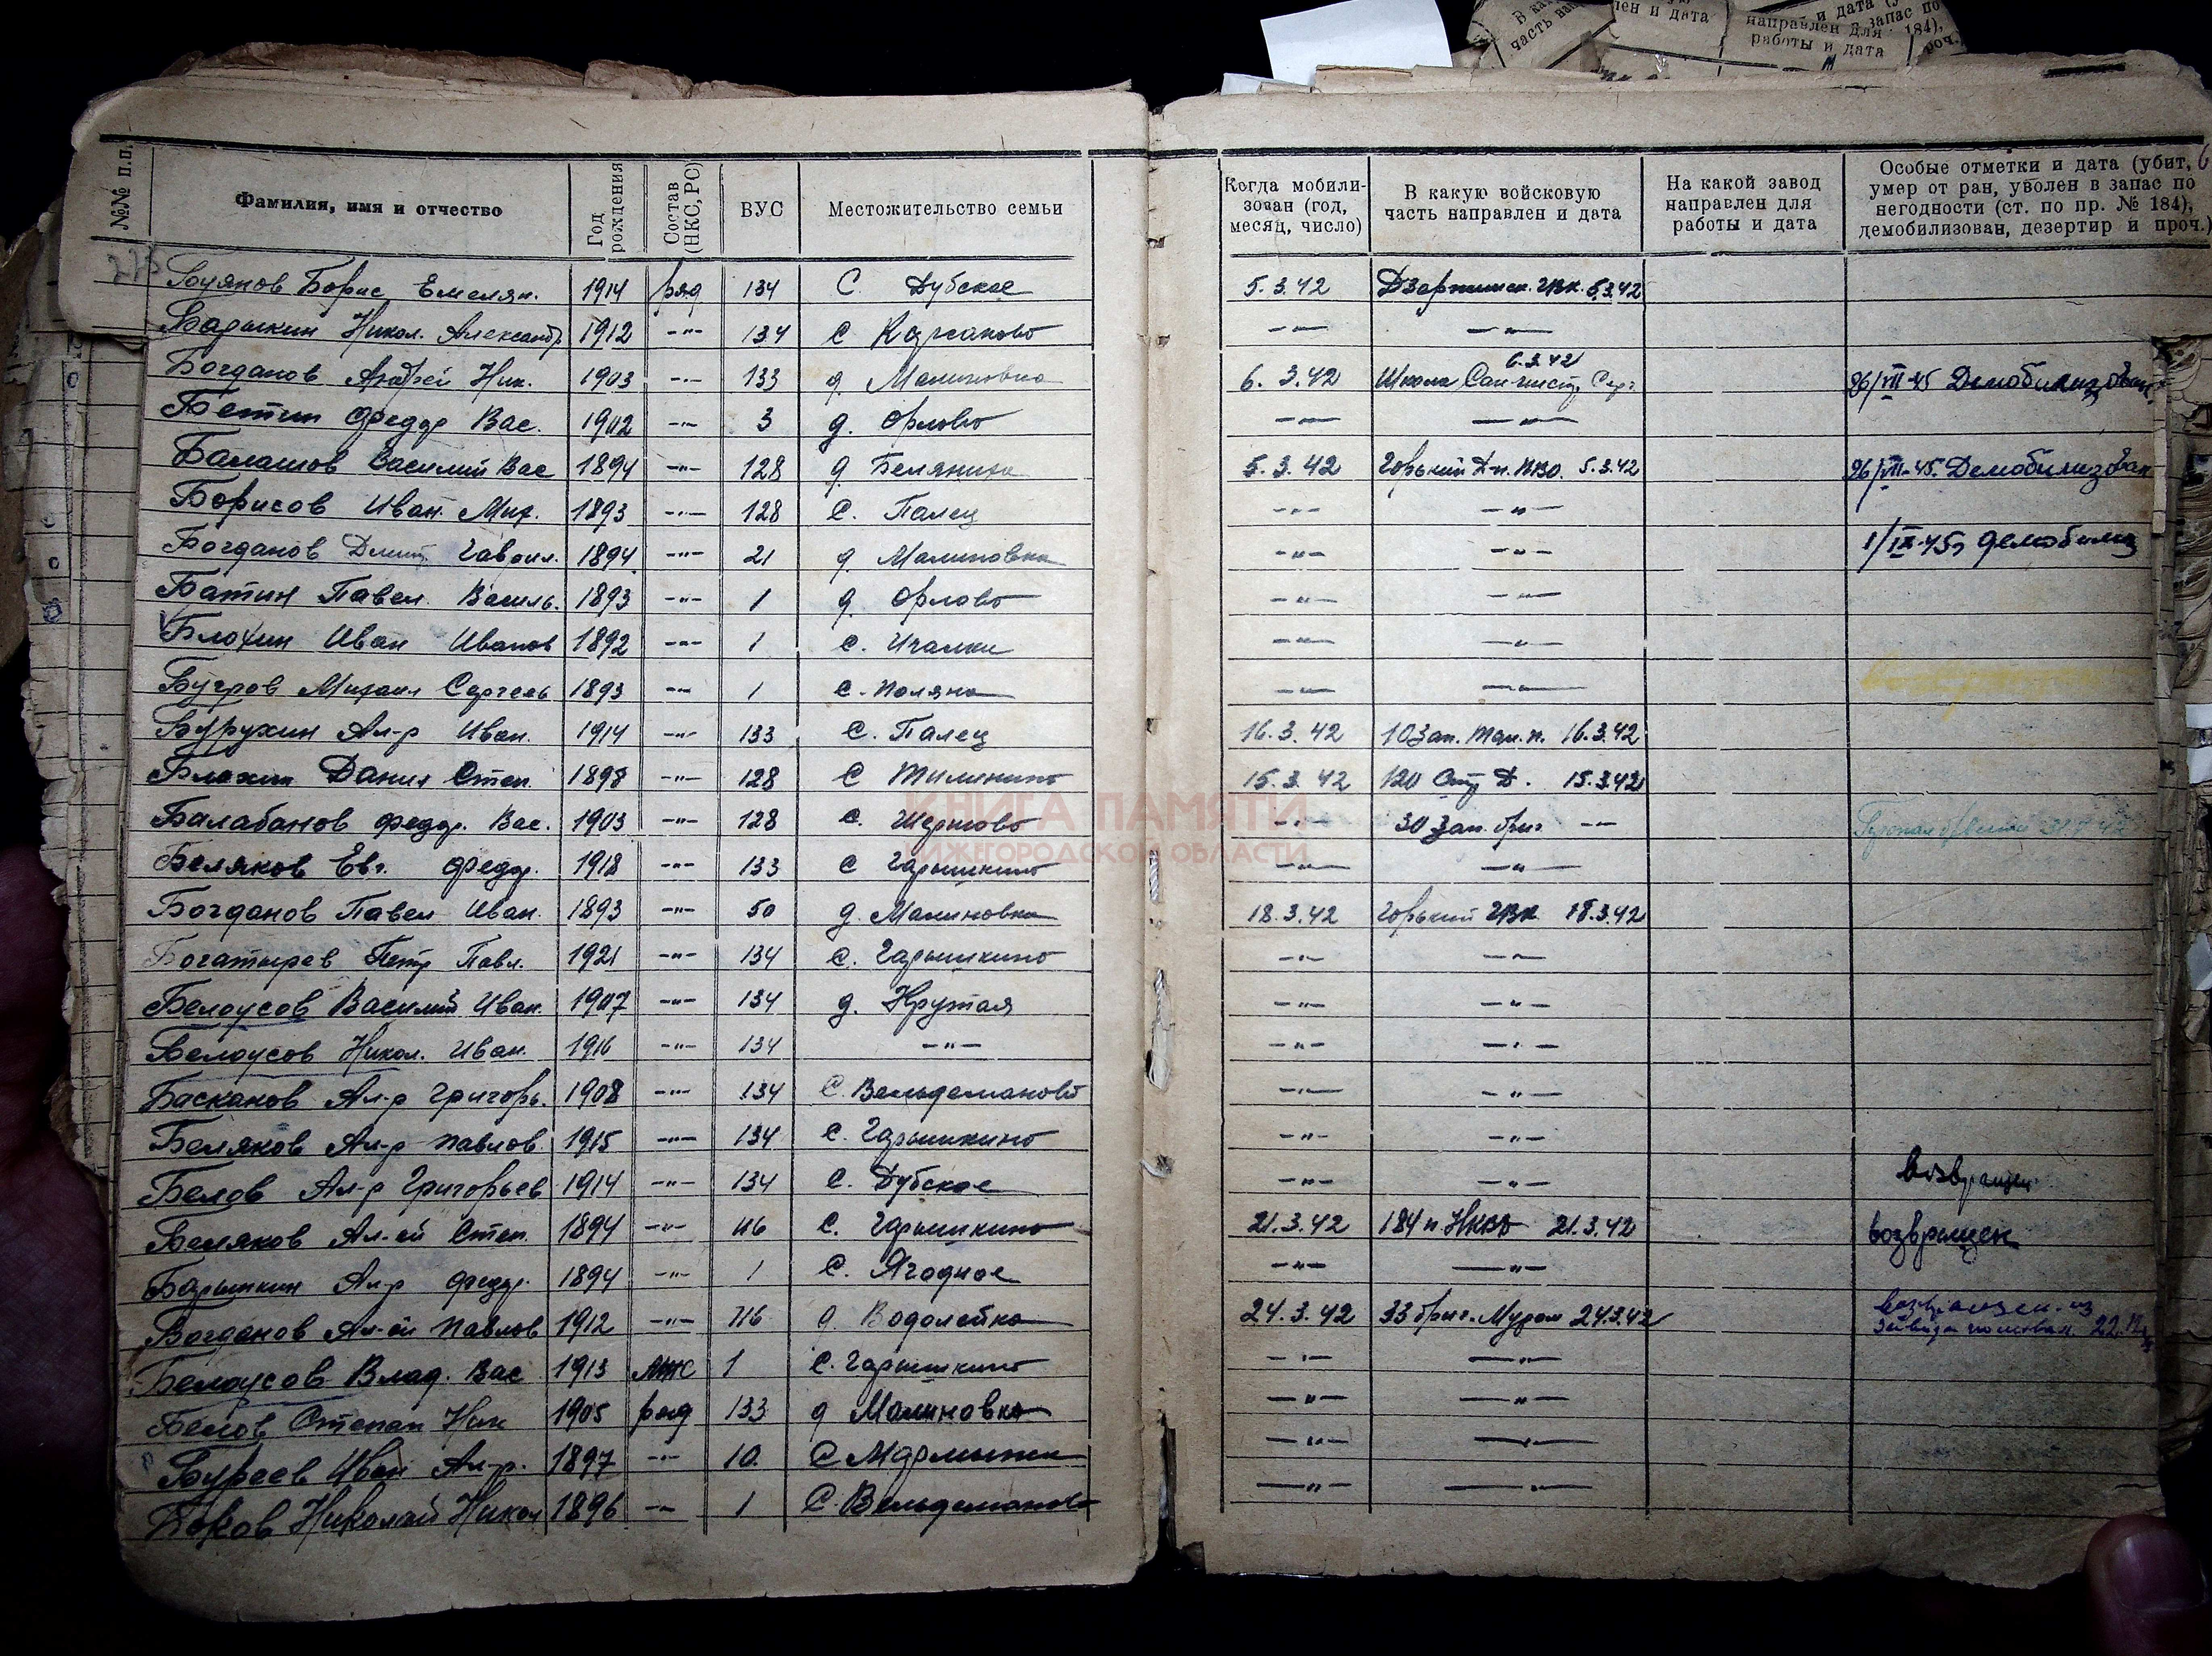 №№ п.п.
Фамилия, имя и отчество
Год рождения
Состав (НКС, РС)
ВУС
Местожительство семьи
Когда мобилизован (год, месяц, число)
В какую войсковую часть направлен и дата
На какой завод направлен для работы и дата
Особые отметки и дата (убит, умер от ран, уволен в запас по негодности (ст. по пр. № 184), демобилизован, дезертир и проч.)
Буянов Борис Емелян. 1914 ряд 134 С. Дубское 5.3.42 Дзержинск. ГВК. 5.3.42
Никол. Александр 1912 -"- 134 С -"- -"-
Богданов Андрей Ник. 1903 -"- 133 д. Малиновка 6.3.42 Школа 6.3.42 26/VIII-45 Демобилизован
Бетин Федор Вас. 1902 -"- 3 д. Орлово -"- -"-
Балашов Василий Вас 1894 -"- 128 д. 5.3.42 Горький ПВО. 5.3.42 26/VIII-45. Демобилизован
Борисов Иван. Мих. 1893 -"- 128 С. Палец -"- -"-
Богданов Дмит. Гаврил. 1894 -"- 21 д. Малиновка -"- -"- 1/IX-45 демобилиз
Батин Павел Василь. 1893 -"- 1 д. Орлово -"- -"-
Блохин Иван Иванов 1892 -"- 1 С. Ичалки -"- -"-
Бугров Михаил Сергеев 1893 -"- 1 С. Поляна -"- -"-
Бурухин Ал-р Иван. 1914 -"- 133 С. Палец 16.3.42 10 зап. п. 16.3.42
Блохин Данил Степ. 1898 -"- 128 С Тилинино 15.3.42 120 Д. 15.3.42
Балабанов Федор. Вас. 1903 -"- 128 С. -"- 30 зап. бриг -"-
Беляков Евг. Федор. 1918 -"- 133 С Гарышкино -"- -"-
Богданов Павел Иван. 1893 -"- 50 д. Малиновка 18.3.42 Горький ГВК 18.3.42
Богатырев Петр Павл. 1921 -"- 134 С. Гарышкино -"- -"-
Белоусов Василий Иван. 1907 -"- 134 д. Крутая -"- -"-
Белоусов Никол. Иван. 1916 -"- 134 -"- -"- -"-
Басканов Ал-р Григорь. 1908 -"- 134 С. Вельдеманово -"- -"-
Беляков Ал-р Павлов. 1915 -"- 134 С. Гарышкино -"- -"-
Белов Ал-р Григорьев 1914 -"- 134 С. Дубское -"- -"- возвращен
Беляков Ал-ей Степ. 1894 -"- С. Гарышкино 21.3.42 184 п НКВД 21.3.42 возвращен
Барышкин Ал-р Федор. 1894 -"- 1 С. Ягодное -"- -"-
Богданов Ал-ей Павлов 1912 -"- д. Водолейка 24.3.42 33 бриг. Муром 24.3.42 возвращен из
Белоусов Влад. Вас 1913 МНС 1 С. Гарышкино -"- -"-
Белов Степан Ник 1905 ряд 133 д Малиновка -"- -"-
Буреев Иван Ал-р. 1897 -"- 10 С -"- -"-
Боков Николай Никол 1896 -"- 1 С. Вельдеманово -"- -"-
КНИГА ПАМЯТИ
НИЖЕГОРОДСКОЙ ОБЛАСТИ